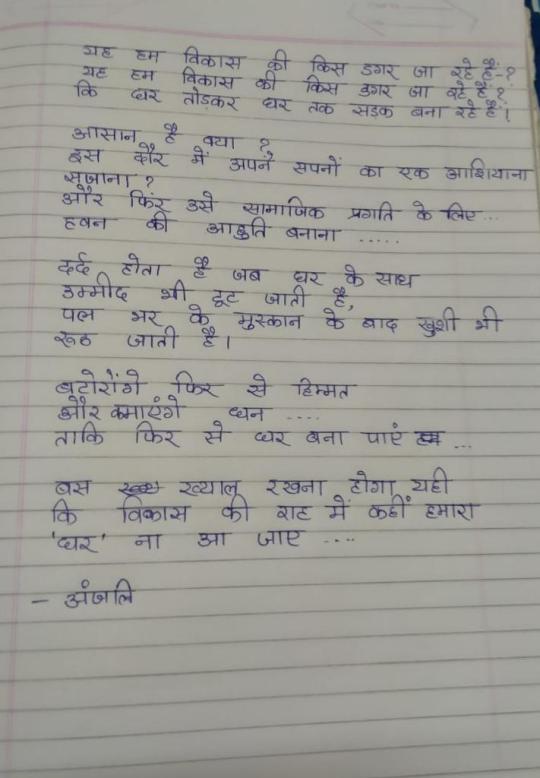 यह हम विकास की किस डगर जा रहे हैं-?
यह हम विकास की किस डगर जा रहे हैं?
कि घर तोड़कर घर तक सड़क बना रहे हैं।
आसान है क्या ?
इस दौर में अपने सपनों का एक आशियाना
सजाना ?
और फिर उसे सामाजिक प्रगति के लिए...
हवन की आहुति बनाना .....
दर्द होता है जब घर के साथ
उम्मीद भी टूट जाती है,
पल भर के मुस्कान के बाद खुशी भी
रूठ जाती है।
बटोरोंगे फिर से हिम्मत
और कमाएंगे धन ....
ताकि फिर से घर बना पाएं हम ...
बस ख्याल रखना होगा यही
कि विकास की राह में कहीं हमारा
'घर' ना आ जाए ....
- अंजलि